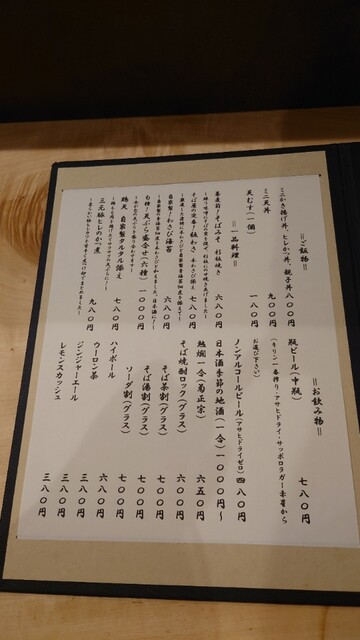 ＝ご飯物＝
ミニかき揚げ丼、ヒレかつ丼、親子丼 八〇〇円
ミニ天丼 九〇〇円
天むす（一個） 一八〇円
＝一品料理＝
蕎麦前！そばみそ 杉板焼き 六八〇円
そば屋の定番！板わさ 本わさび添え 七八〇円
自家製！わさび海苔 六八〇円
旬種！天ぷら盛合せ（六種） 一〇〇〇円
鶏天 自家製タルタル添え 七八〇円
三元豚ヒレのかつ煮 九八〇円
＝お飲み物＝
瓶ビール（中瓶） 七八〇円
（キリン一番搾り・アサヒドライ・サッポロラガー赤星から
お選び下さい）
ノンアルコールビール（アサヒドライゼロ） 四八〇円
日本酒季節の地酒（一合） 一〇〇〇円～
熱燗一合（菊正宗） 六五〇円
そば焼酎ロック（グラス） 六〇〇円
そば茶割（グラス） 七〇〇円
そば湯割（グラス） 七〇〇円
ソーダ割（グラス） 七〇〇円
ハイボール 六八〇円
ウーロン茶 三八〇円
ジンジャーエール 三八〇円
レモンスカッシュ 三八〇円